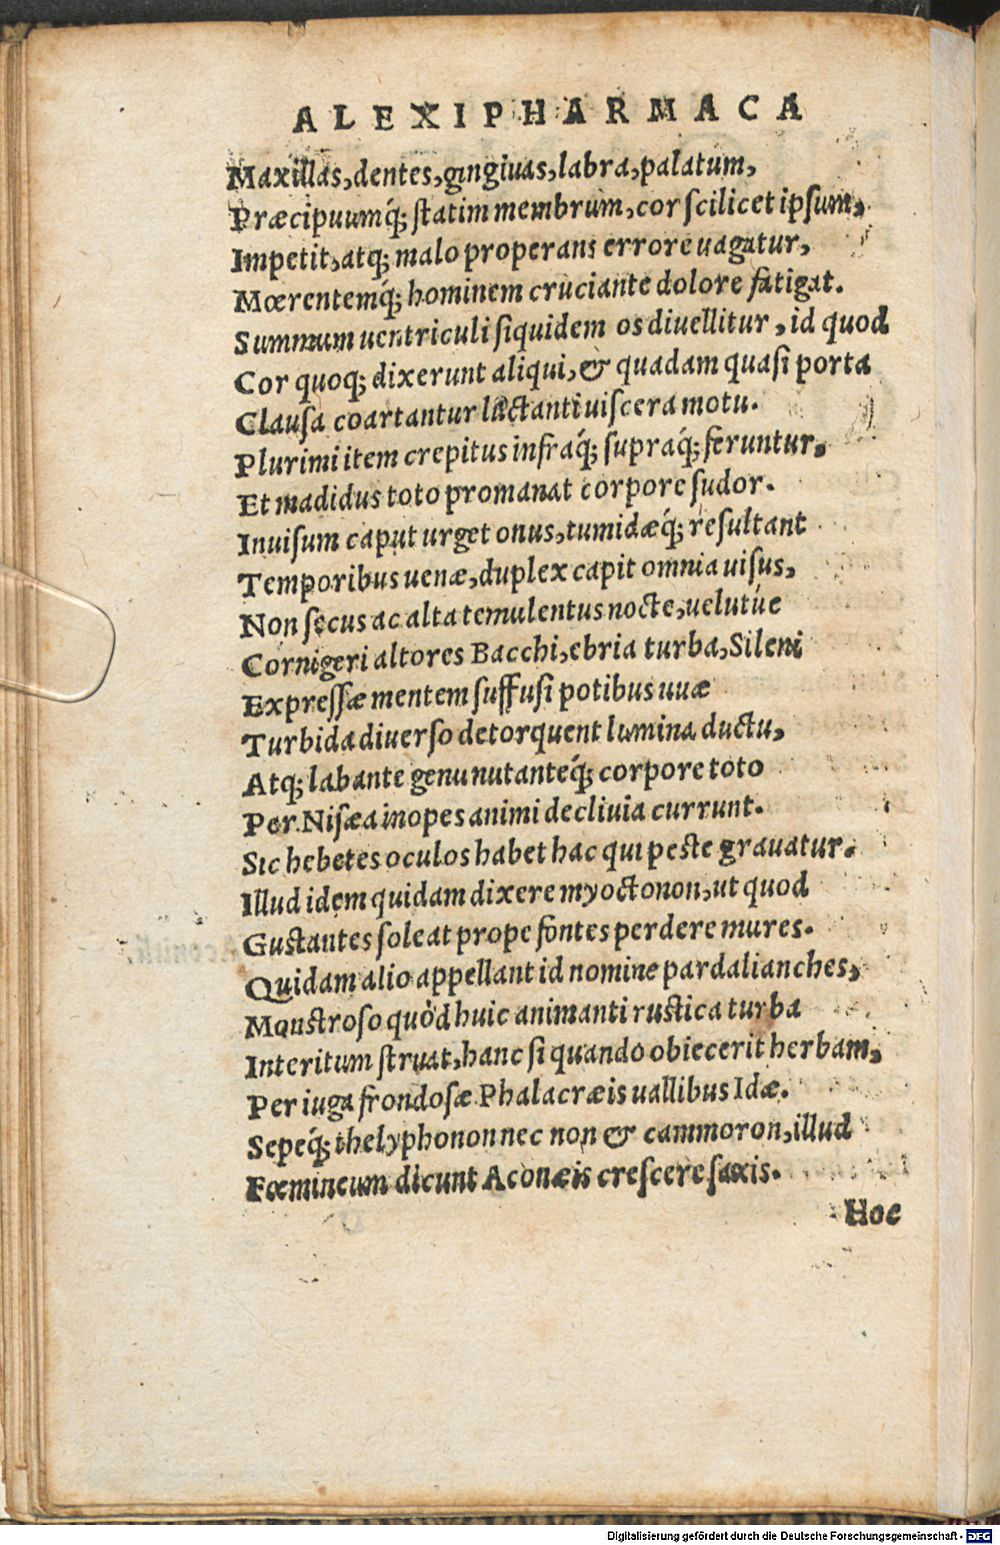 ALEXIPHARMACA
Maxillas, dentes, gingiuas, labra, palatum,
Præcipuumq́; ſtatim membrum, cor ſcilicet ipſum,
Impetit, atq; malo properans errore uagatur,
Mœrentemq́; hominem cruciante dolore fatigat.
Summum uentriculi ſiquidem os diuellitur, id quod
Cor quoq; dixerunt aliqui, & quadam quaſi porta
Clauſa coartantur luctanti uiſcera motu.
Plurimi item crepitus infraq́; ſupraq́; feruntur.
Et madidus toto promanat corpore ſudor.
Inuiſum caput urget onus, tumidæq́; reſultant
Temporibus uenæ, duplex capit omnia uiſus,
Non ſecus ac alta temulentus nocte, uelutúe
Cornigeri altores Bacchi, ebria turba, Sileni
Expreſſæ mentem ſuffuſi potibus uuæ
Turbida diuerſo detorquent lumina ductu,
Atq; labante genu nutanteq́; corpore toto
Per Niſæa inopes animi decliuia currunt.
Sic hebetes oculos habet hac qui peſte grauatur.
Illud idem quidam dixere myoctonon, ut quod
Guſtantes ſoleat prope fontes perdere mures.
Quidam alio appellant id nomine pardalianches,
Monſtroſo quòd huic animanti ruſtica turba
Interitum ſtruat, hanc ſi quando obiecerit herbam,
Per iuga frondoſæ Phalacræis uallibus Idæ.
Sepeq́; thelyphonon nec non & cammoron, illud
Fœmineum dicunt Aconæis creſcere ſaxis.
Hoc
Digitalisierung gefördert durch die Deutsche Forschungsgemeinschaft - DFG